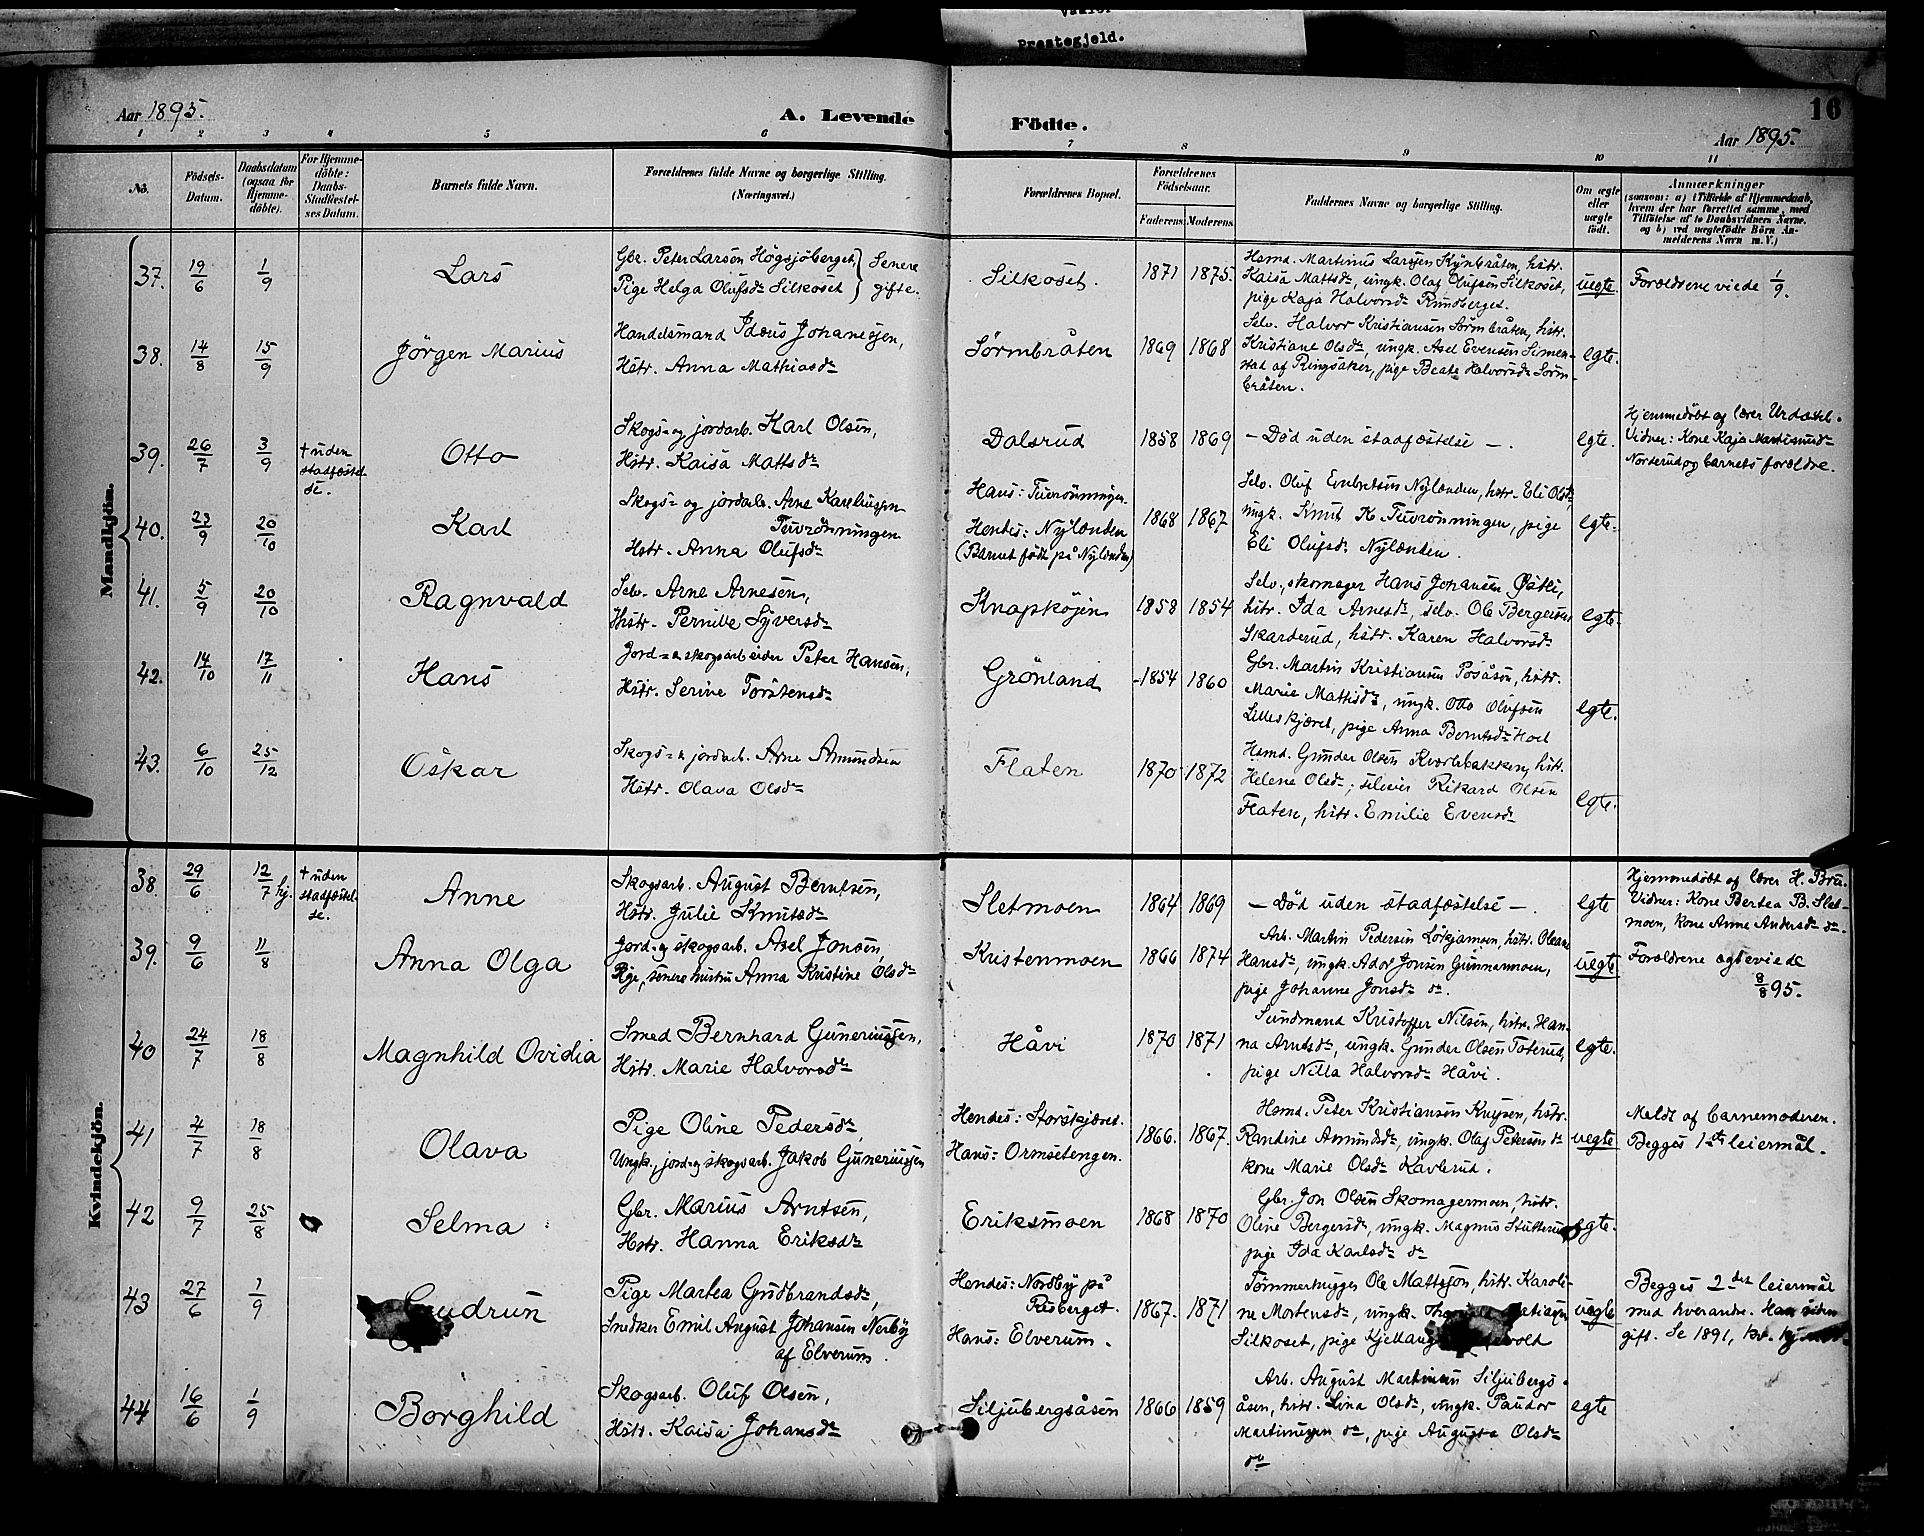 Vaaler
Prestegjeld.
Aar 1895.
A. Levende Födte.
16
Aar 1895.
1 2 3 4 5 6 7 8 9 10 11
No.
Födsels-Datum.
Daabsdatum (ogsaa for Hjemme-döbte).
For Hjemme-döbte: Daabs-Stadfæstel-ses Datum.
Barnets fulde Navn.
Forældrenes fulde Navne og borgerlige Stilling.
(Næringsvei.)
Forældrenes Bopæl.
Forældrenes Födselsaar.
Faderens. Moderens.
Faddernes Navne og borgerlige Stilling.
Om ægte eller uægte födt.
Anmærkninger
(saasom: a) i Tilfælde af Hjemmedaab,
hvem der har forrettet samme, med
Tilföielse af to Daabsvidners Navne.
og b) ved uægtefödte Börn An-
melderens Navn m. V.)
Mandkjön.
37. 19/6 1/9 Lars
Gbr. Peter Larsen Högsjöberget,
Pige Helga Olufsdr Silkoset
Senere
gifte.
Silkoset.
1871 1875.
Hsmd. Martinus Larssen Kynbråten, hstr.
Kaisa Mattsdr, ungk. Olaf Olufsen Silkoset,
pige Kaja Halvorsdr Rundberget.
uegte.
Forældrene viede 1/9.
38. 14/8 15/9 Jörgen Marius
Handelsmand Idæus Johanesjen,
Hstr. Anna Mathiasdr
Sørmbråten
1869 1868
Selv. Halvor Kristiansen Sørmbråten, hstr.
Kristiane Olsdr, ungk. Axel Evensen Simen-
stad af Ringsaker, pige Beate Halvorsdr Sørm-
bråten.
egte.
39. 26/7 3/9
† uden
stadfæstel
se.
Otto
Skogs- og jordarb. Karl Olsen,
Hstr. Kaisa Mattsdr
Dalsrud
1858 1869
- Död uden stadfæstelse - .
egte.
Hjemmedöbt af lærer Urdæstel.
Vidner: Kone Kaja Martinusdr
Norderud og barnets forældre.
40. 23/9 20/10 Karl
Skogs- og jordarb. Arne Kareliussen
Tuvrønningen
Hstr. Anna Olufsdr
Hans: Tuvrønningen.
Hendes: Nylænden
(Barnet födt på Nylænden)
1868 1867.
Selv. Oluf Embretsen Nylænden, hstr. Eli Olsdr,
ungk. Knut K. Tuvrønningen, pige
Eli Olufsdr Nylænden.
egte.
41. 5/9 20/10 Ragnvald
Selv. Arne Arnesen,
Hstr. Pernille Syversdr
Knapkøjen
1858 1854
Selv., skomager Hans Johansen Østli,
hstr. Ida Arnesdr, selv. Ole Bergersen
Skarderud, hstr. Karen Halvorsdr
egte.
42. 14/10 17/11 Hans
Jord- & skogsarbeider Peter Hansen,
Hstr. Serine Torstensdr
Grönland
1854 1860
Gbr. Martin Kristiansen Posåsen, hstr.
Marie Mathisdr, ungk. Otto Olufsen
Lilleskjæret, pige Anna Berntsdr Hoel
egte.
43. 6/10 25/12 Oskar
Skogs- & jordarb. Arne Amundsen
Hstr. Olava Olsdr
Flaten
1870 1872
Hsmd. Gunder Olsen Kværbakken, hstr.
Helene Olsdr; Rikard Olsen
Flaten, hstr. Emilie Evensdr
egte.
Kvindekjön.
38. 29/6 12/7 hj.
† uden
stadfæstel-
se.
Anne
Skogsarb. August Berntsen,
Hstr. Julie Knutsdr
Sletmoen
1864 1869
- Död uden stadfæstelse - .
egte
Hjemmedöbt af lærer H. Bru.
Vidner: Kone Bertea B. Slet-
moen, kone Anne Andersdr do.
39. 9/6 11/8 Anna Olga
Jord- og skogsarb. Axel Jonsen,
Pige, senere hustru Anna Kristine Olsdr
Kristenmoen
1866 1874
Arb. Martin Pedersen Løkjamoen, hstr. Oleane
Hansdr, ungk. Adolf Jonsen Gunnarmoen,
pige Johanne Jonsdr do.
uegte
Forældrene egteviede
8/8 95.
40 24/7 18/8 Magnhild Ovidia
Smed Bernhard Guneriussen,
Hstr. Marie Halvorsdr
Håvi
1870 1871
Sundmand Kristoffer Nilsen, hstr. Han-
na Arntsdr, ungk. Gunder Olsen Toterud,
pige Nilla Halvorsdr Håvi.
egte.
41 4/7 18/8 Olava
Pige Oline Pedersdr,
Ungk., jord- og skogsarb. Jakob Guneriussen
Hendes: Storskjæret.
Hans: Ormsetengen.
1866. 1867.
Hsmd. Peter Kristiansen Knysen, hstr.
Randine Amundsdr, ungk. Olaf Petersen do
kone Marie Olsdr Kavlerud.
uegte
Meldt af barnemoderen.
Begges 1ste leiermål.
42 9/7 25/8 Selma
Gbr. Marius Arntsen,
Hstr. Hanna Eriksdr
Eriksmoen
1868 1870
Gbr. Jon Olsen Skomagermoen, hstr.
Oline Bergersdr, ungk. Magnus Stutterud
pige Ida Karlsdr do
egte.
43 27/6 1/9 Gudrun
Pige Martea Gudbrandsdr,
Snedker Emil August Johansen Nerby
af Elverum.
Hendes: Nordby på
Risberget.
Hans: Elverum.
1867. 1871
Tømmerhugger Ole Mattsson, hstr. Karoli-
ne Mortensdr, ungk.
Silkoset, pige
uegte
Begges 2det leiermål
med hverandre. Han siden
gift. Se 1891, kv. kj.
44 16/6 1/9 Borghild
Skogsarb. Oluf Olsen,
Hstr. Kaisa Johansdr
Siljubergsåsen
1866 1859
Arb. August Martinsen Siljubergs-
åsen, hstr. Lina Olsdr, ungk. Paudor
Martinusen do, pige Augusta Olsdr
do
egte